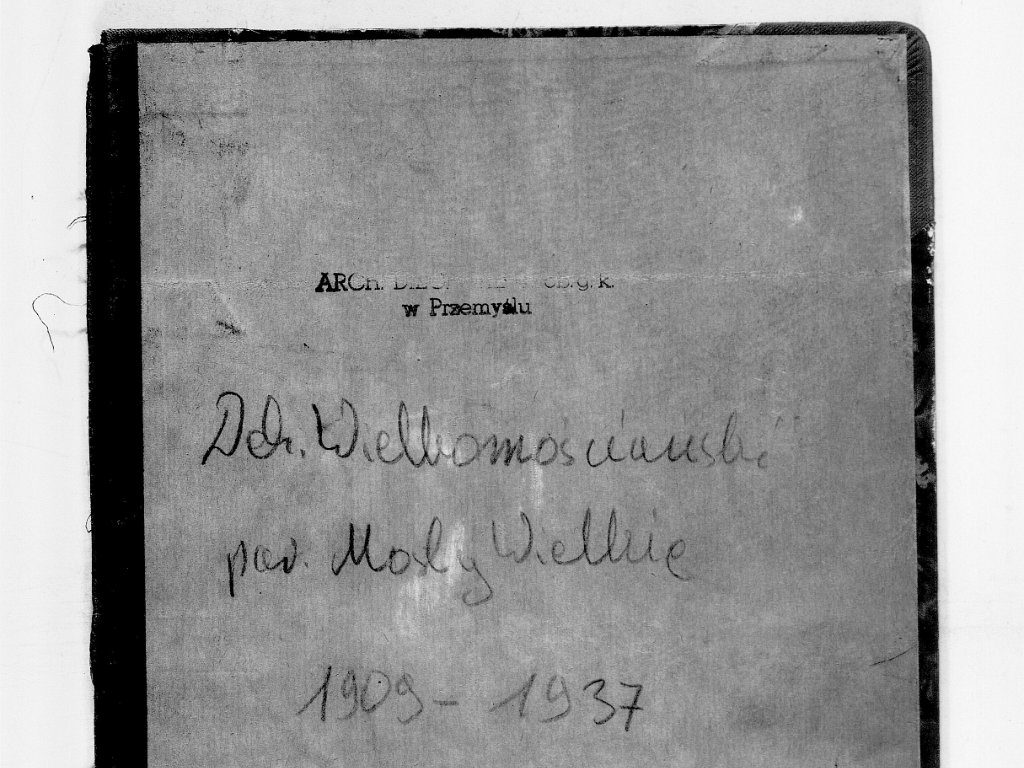 ARCH. ob. g. k.
w Przemyślu
Dek. Wielkomościański
par. Mosty Wielkie
1909 - 1937